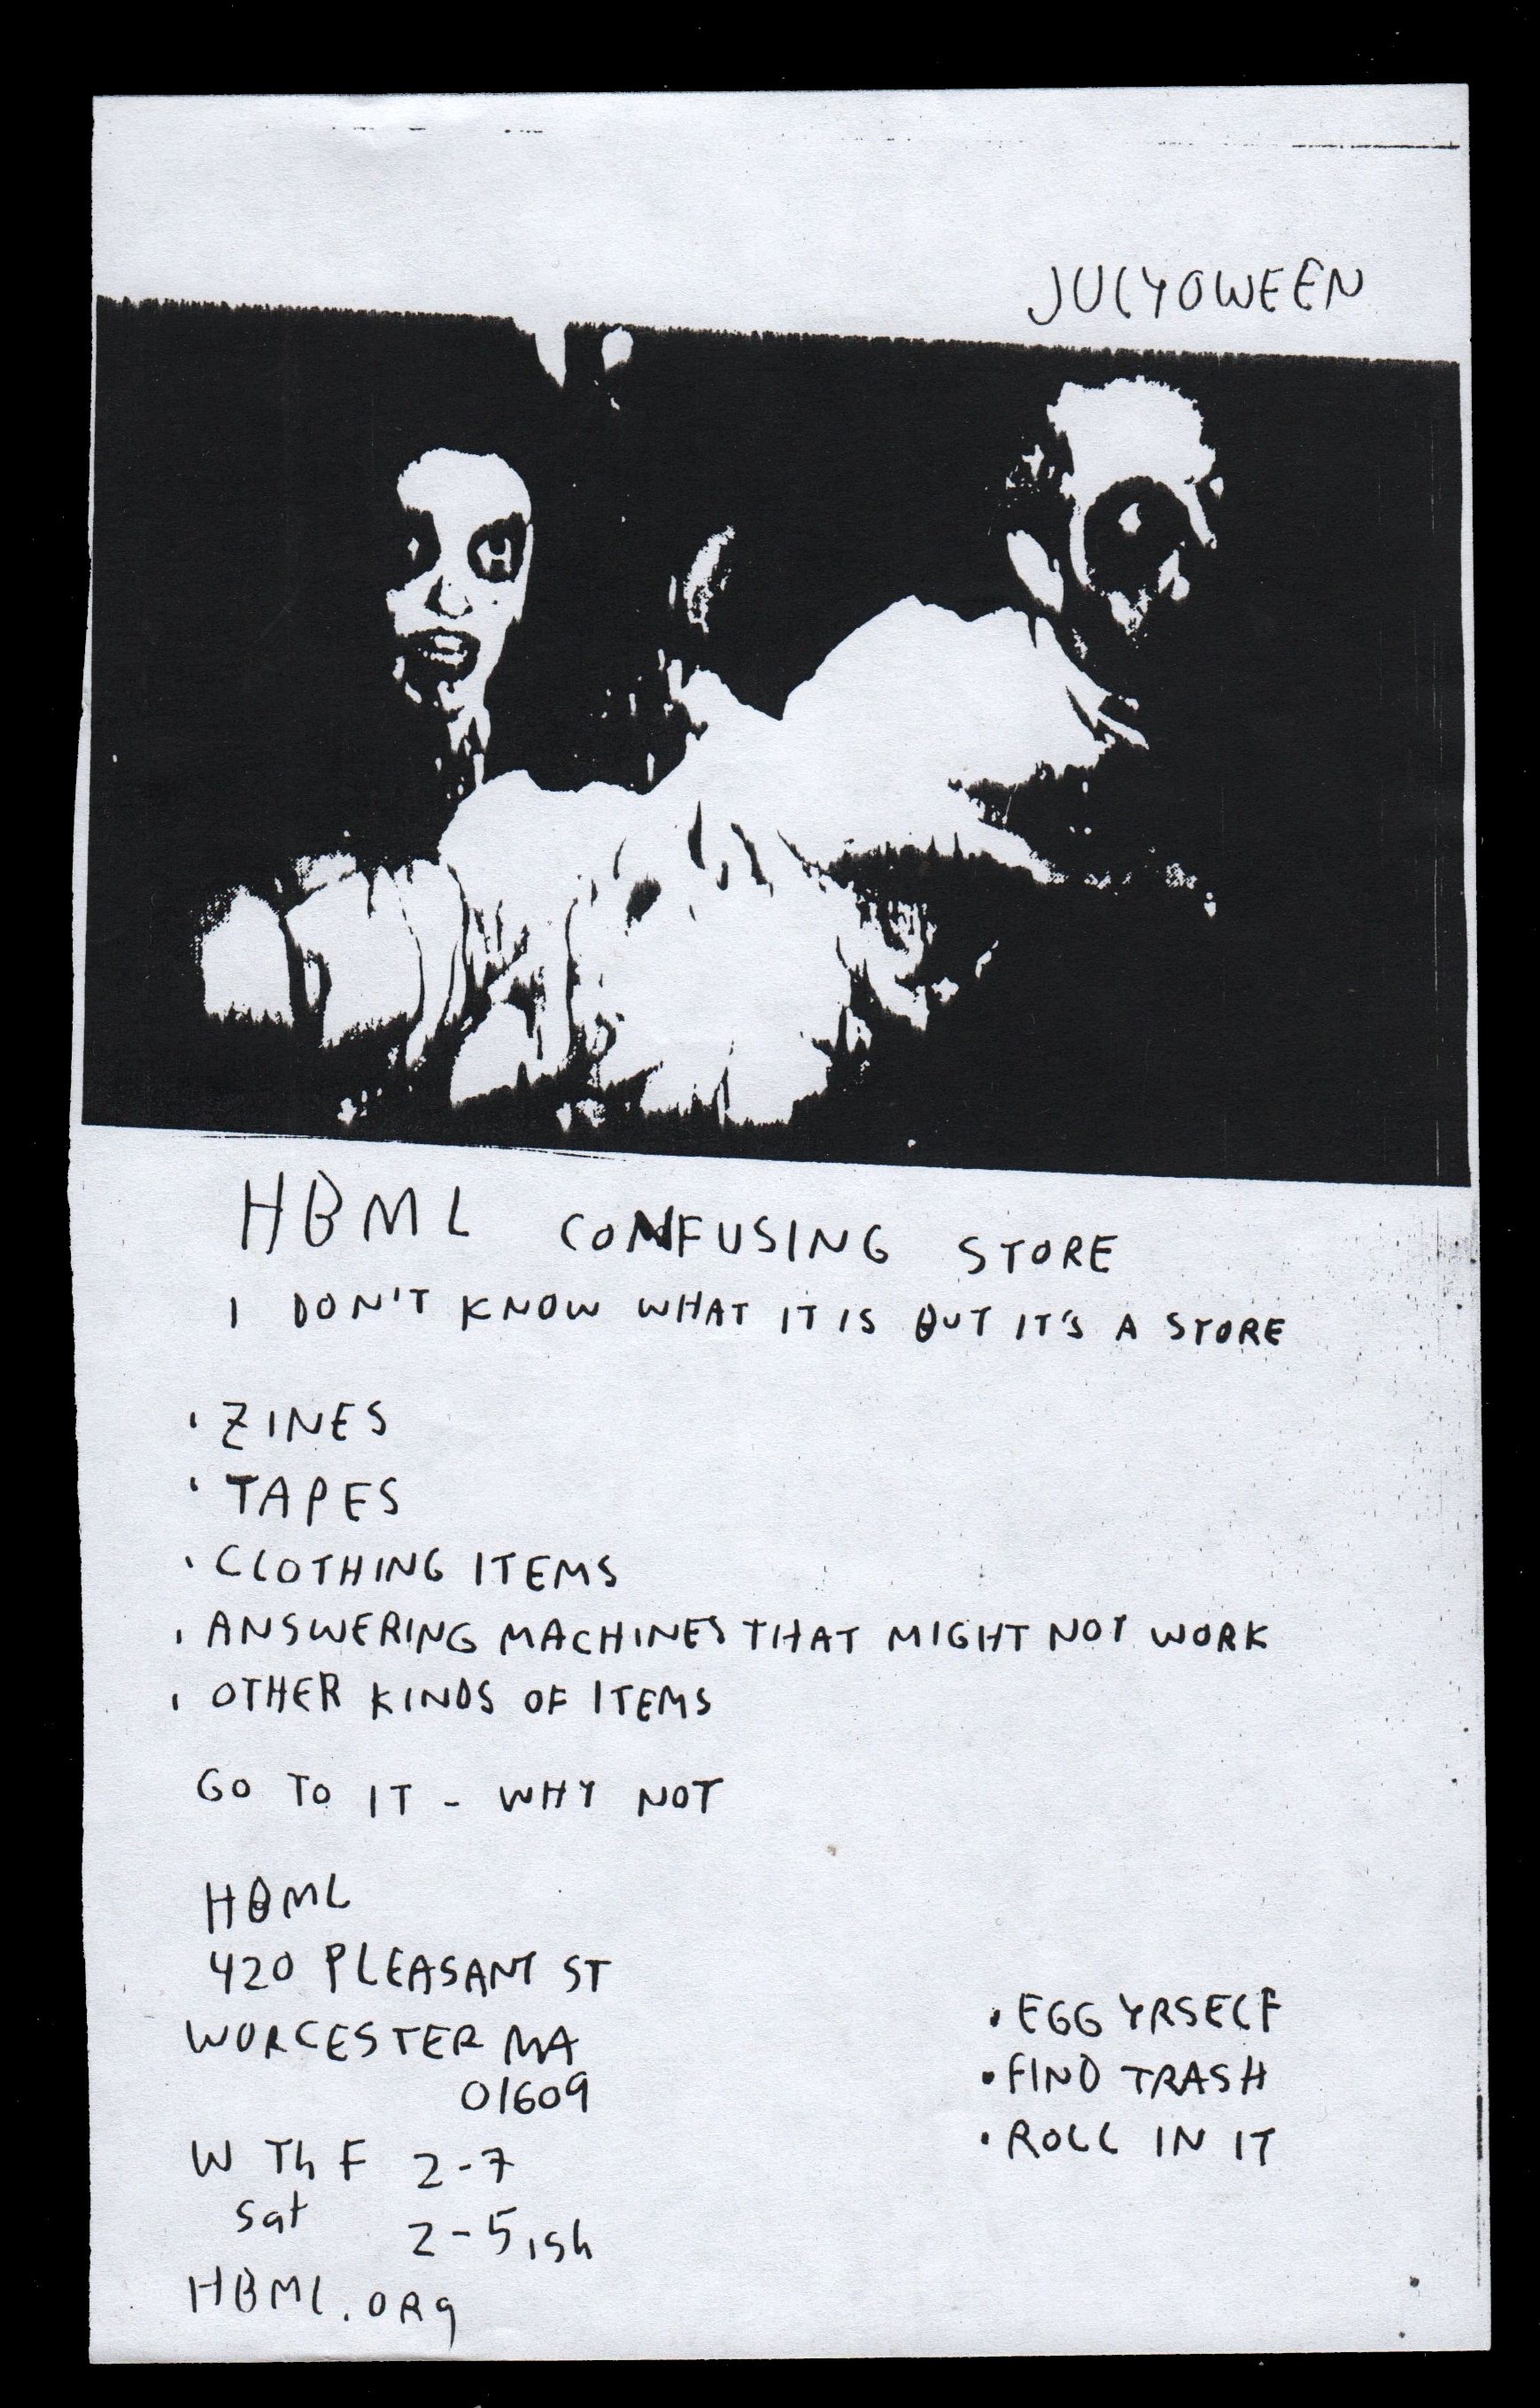 JULYOWEEN
HBML CONFUSING STORE
I DON'T KNOW WHAT IT IS BUT IT'S A STORE
• ZINES
• TAPES
• CLOTHING ITEMS
• ANSWERING MACHINES THAT MIGHT NOT WORK
• OTHER KINDS OF ITEMS
GO TO IT - WHY NOT
HBML
420 PLEASANT ST
WORCESTER MA
01609
W Th F 2-7
Sat 2-5ish
HBML.ORg
• EGG YRSELF
• FIND TRASH
• ROLL IN IT